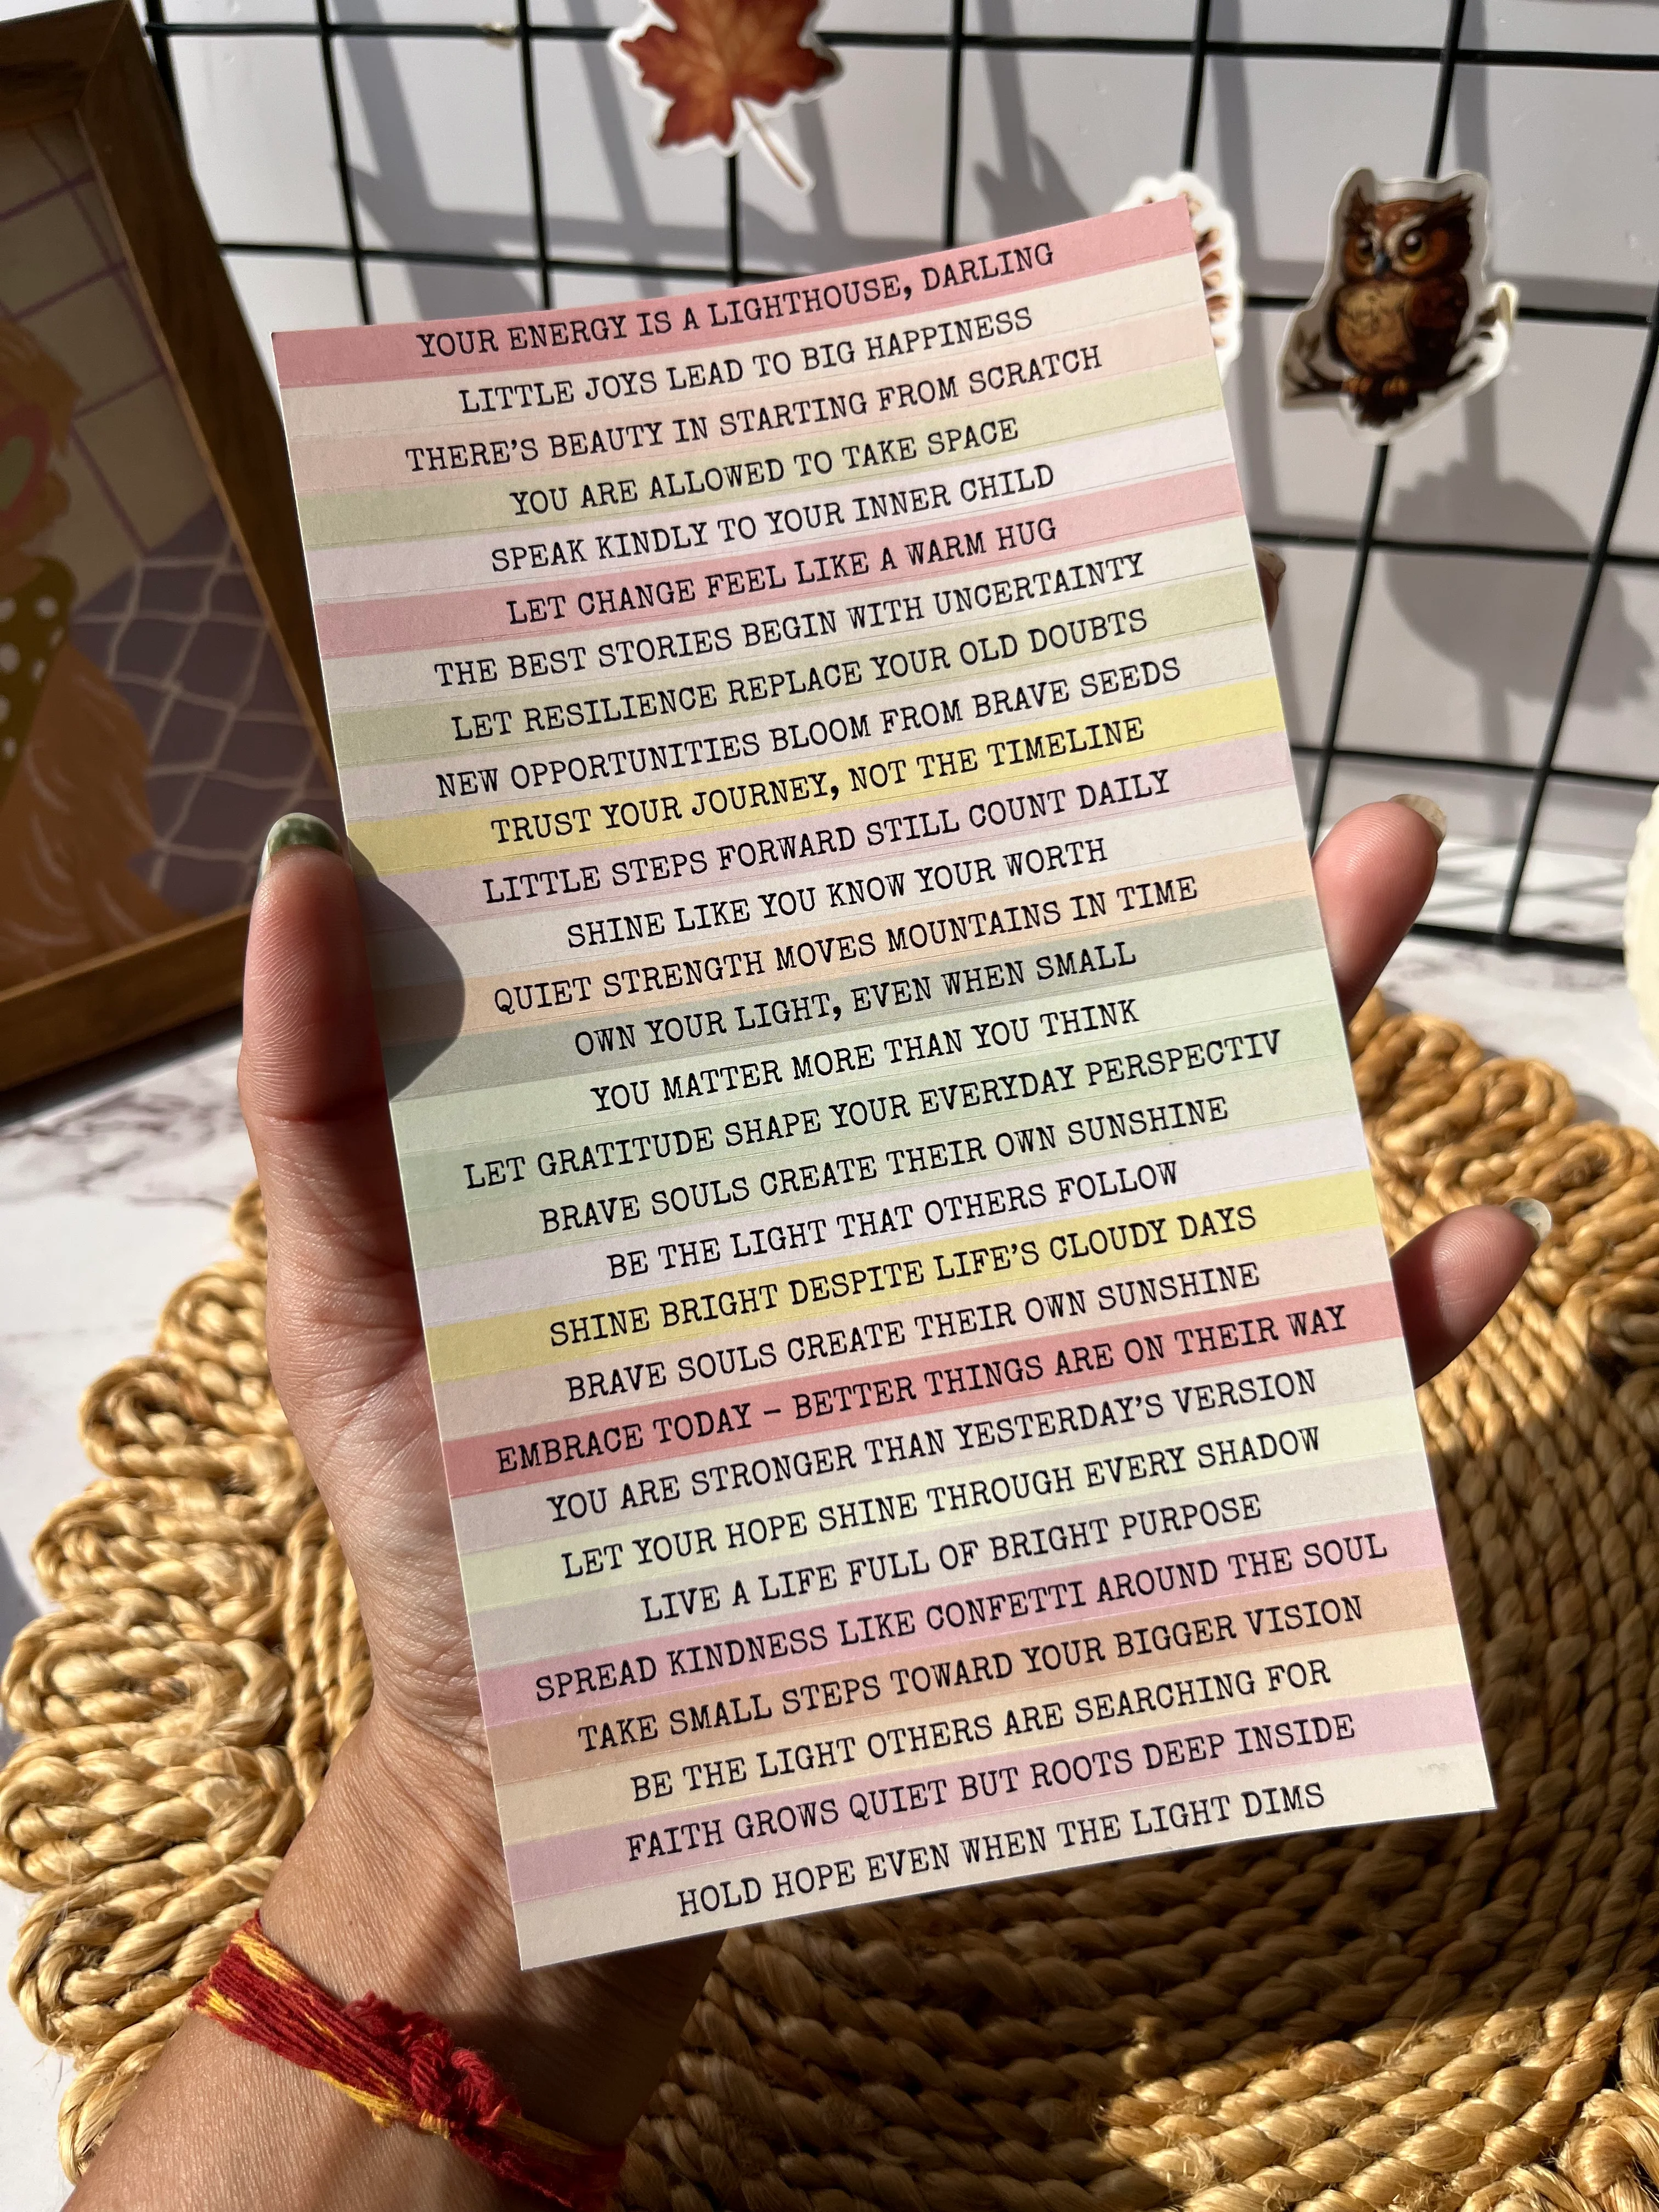 YOUR ENERGY IS A LIGHTHOUSE, DARLING
LITTLE JOYS LEAD TO BIG HAPPINESS
THERE'S BEAUTY IN STARTING FROM SCRATCH
YOU ARE ALLOWED TO TAKE SPACE
SPEAK KINDLY TO YOUR INNER CHILD
LET CHANGE FEEL LIKE A WARM HUG
THE BEST STORIES BEGIN WITH UNCERTAINTY
LET RESILIENCE REPLACE YOUR OLD DOUBTS
NEW OPPORTUNITIES BLOOM FROM BRAVE SEEDS
TRUST YOUR JOURNEY, NOT THE TIMELINE
LITTLE STEPS FORWARD STILL COUNT DAILY
SHINE LIKE YOU KNOW YOUR WORTH
QUIET STRENGTH MOVES MOUNTAINS IN TIME
OWN YOUR LIGHT, EVEN WHEN SMALL
YOU MATTER MORE THAN YOU THINK
LET GRATITUDE SHAPE YOUR EVERYDAY PERSPECTIV
BRAVE SOULS CREATE THEIR OWN SUNSHINE
BE THE LIGHT THAT OTHERS FOLLOW
SHINE BRIGHT DESPITE LIFE'S CLOUDY DAYS
BRAVE SOULS CREATE THEIR OWN SUNSHINE
EMBRACE TODAY – BETTER THINGS ARE ON THEIR WAY
YOU ARE STRONGER THAN YESTERDAY'S VERSION
LET YOUR HOPE SHINE THROUGH EVERY SHADOW
LIVE A LIFE FULL OF BRIGHT PURPOSE
SPREAD KINDNESS LIKE CONFETTI AROUND THE SOUL
TAKE SMALL STEPS TOWARD YOUR BIGGER VISION
BE THE LIGHT OTHERS ARE SEARCHING FOR
FAITH GROWS QUIET BUT ROOTS DEEP INSIDE
HOLD HOPE EVEN WHEN THE LIGHT DIMS